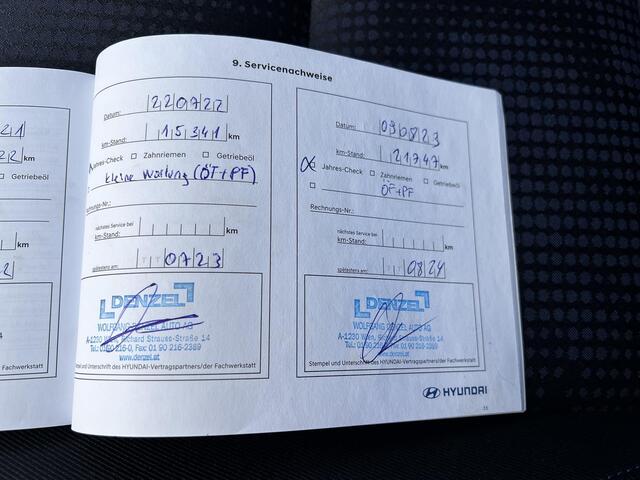 21
22 km
km
2
9. Servicenachweise
Datum: 220722
km-Stand: 15341 km
Jahres-Check Zahnriemen Getriebeöl
kleine Wartung (ÖT+PF)
Rechnungs-Nr.:
nächstes Service bei
km-Stand: km
spätestens am: TT 0723
DENZEL
WOLFGANG DENZEL AUTO AG
A-1230 Wien, Richard Strauss-Straße 14
Tel.: 01 90 216-0, Fax: 01 90 216-2389
www.denzel.at
Stempel und Unterschrift des HYUNDAI-Vertragspartners/der Fachwerkstatt
Datum: 090823
km-Stand: 21747 km
Jahres-Check Zahnriemen Getriebeöl
ÖT+PF
Rechnungs-Nr.:
nächstes Service bei
km-Stand: km
spätestens am: TT 0824
DENZEL
WOLFGANG DENZEL AUTO AG
A-1230 Wien, Richard Strauss-Straße 14
Tel.: 01 90 216-0, Fax: 01 90 216-2389
www.denzel.at
Stempel und Unterschrift des HYUNDAI-Vertragspartners/der Fachwerkstatt
HYUNDAI